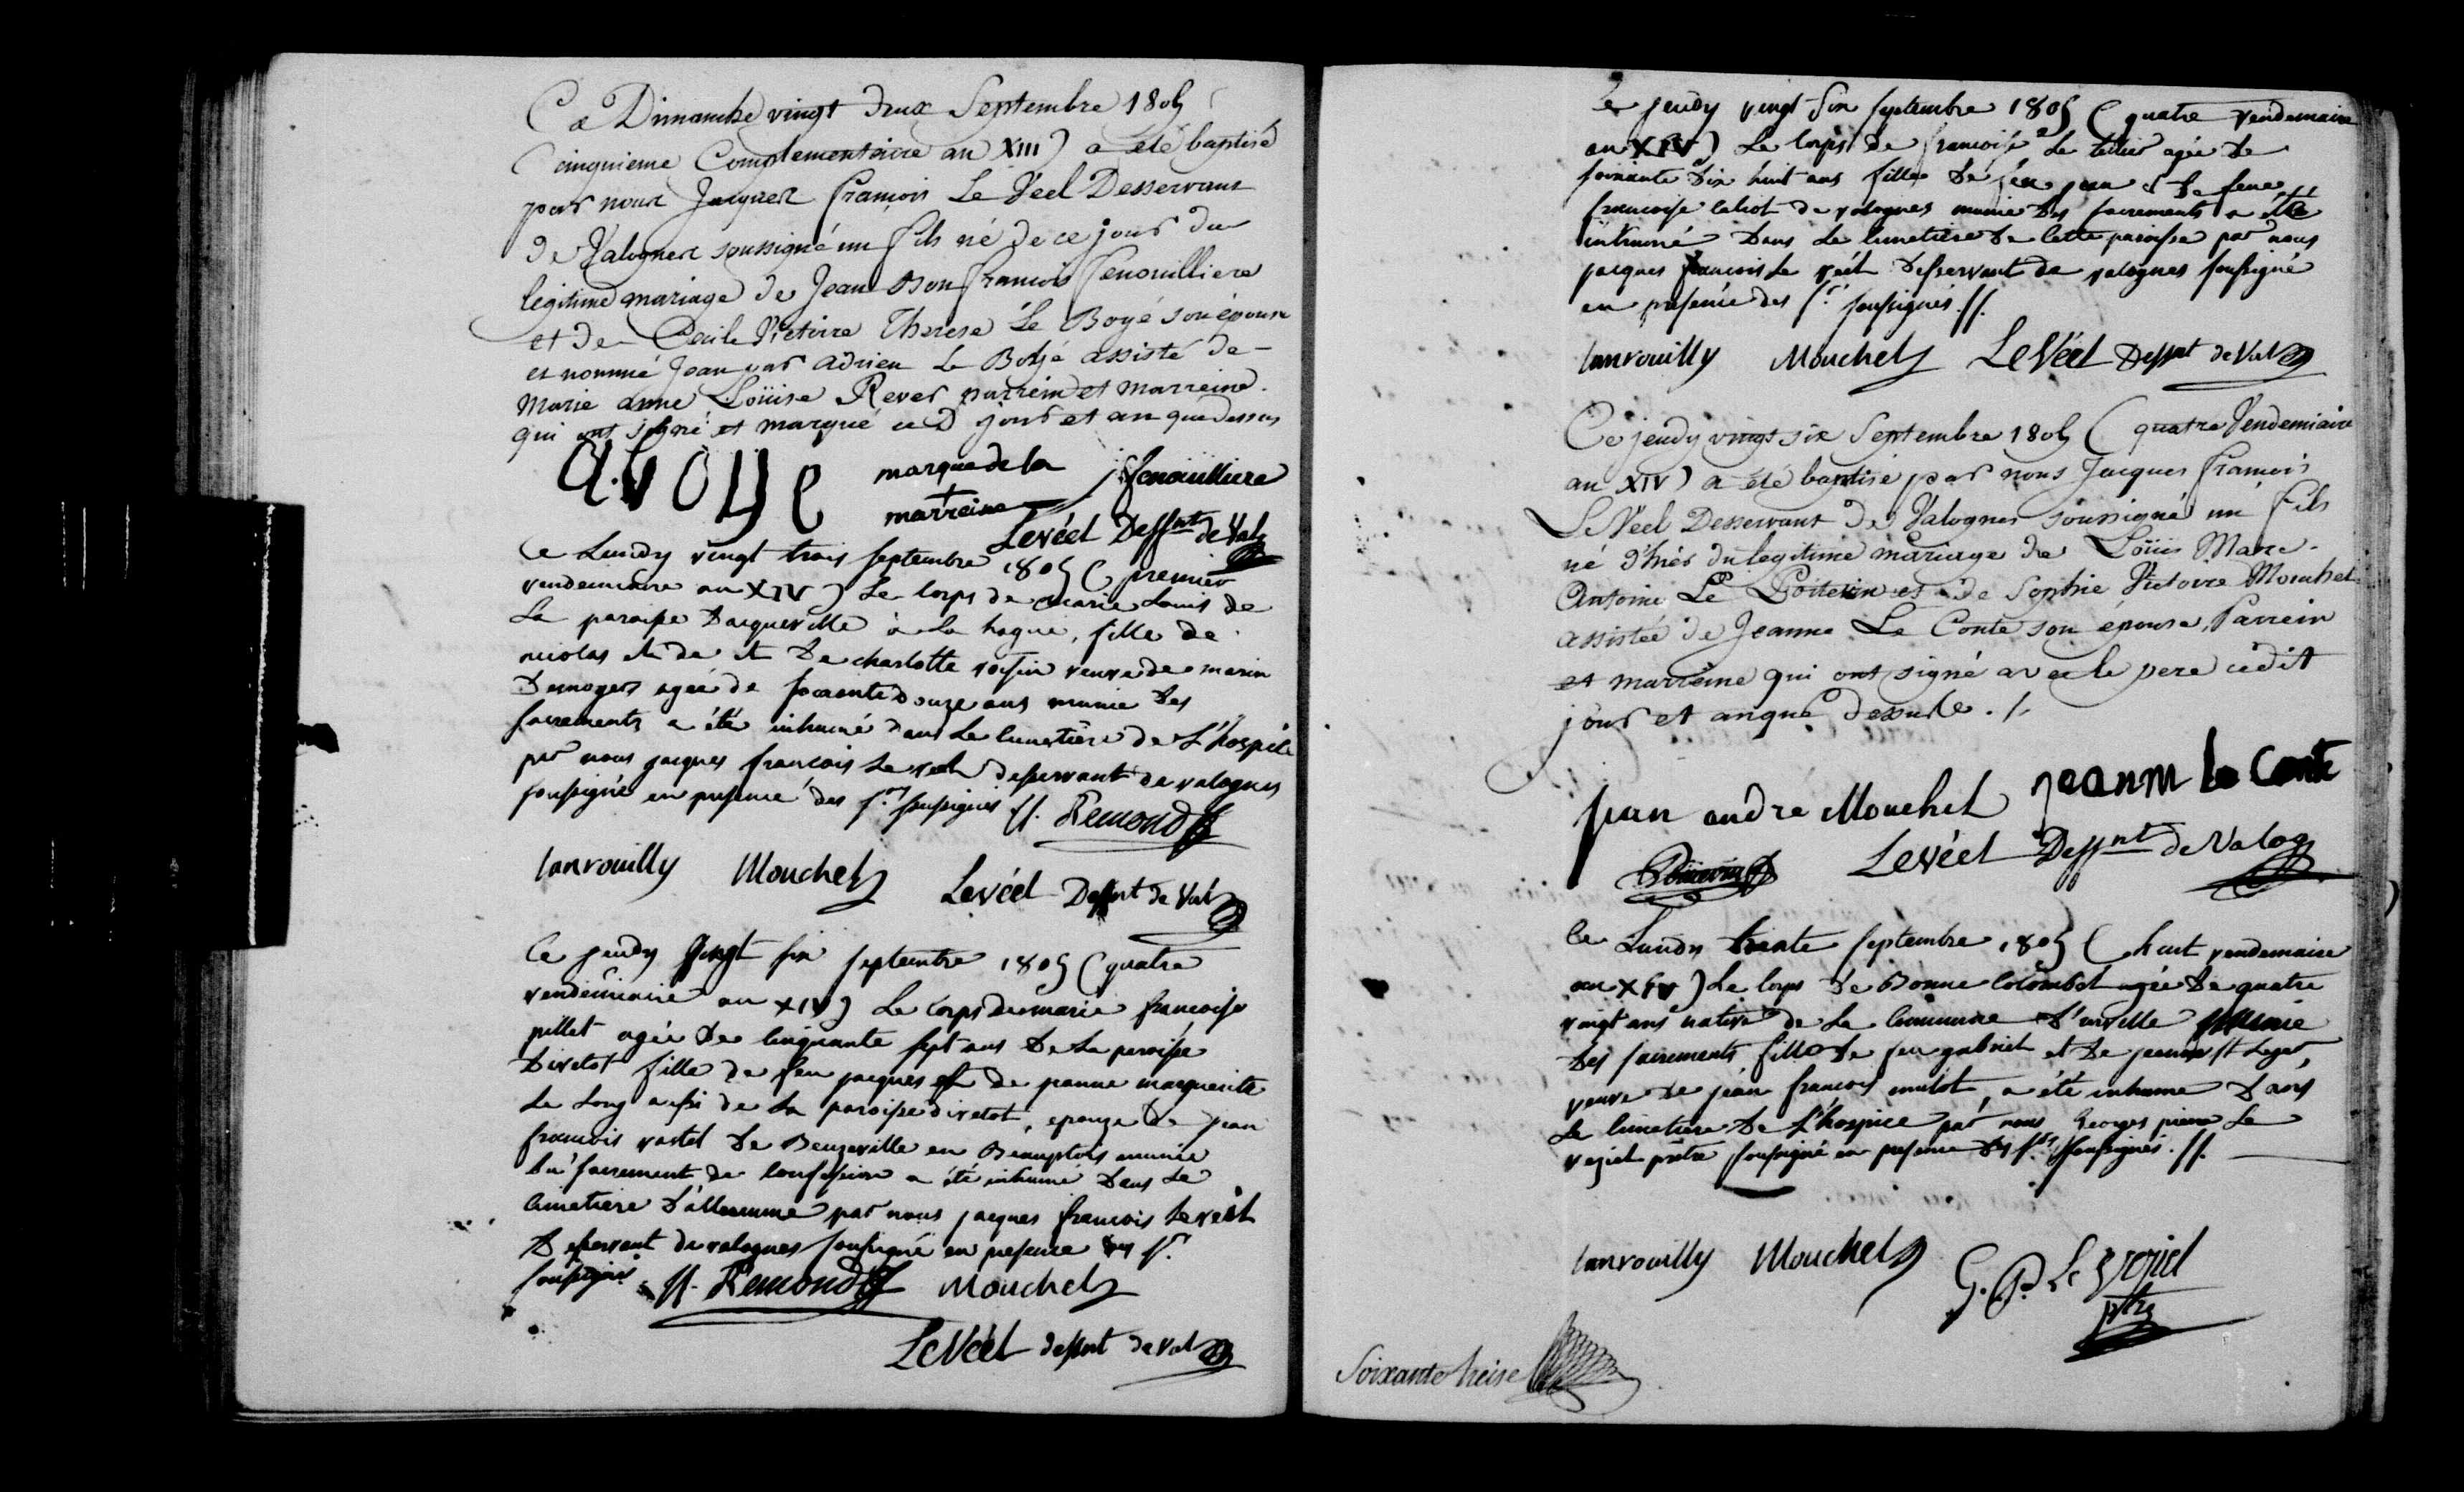 Ce Dimanche vingt deux Septembre 1805
(cinquieme Complementaire an XIII) a été baptisé
par nous Jacques François Le Véel Desservant
de Valognes soussigné un fils né de ce jour du
légitime mariage de Jean Bon François Fenouilliere
et de Cecile Victoire Therese Le Boyé son épouse
et nommé Jean par Adrien Le Boyé assisté de
Marie anne Loüise Rever parrein et marreine
qui ont signé et marqué ce d jour et an que dessus
a.voye marque de la j fenouilliere
marreine Levéel Dessnt de Valg
Ce Lundy vingt trois septembre 1805 (premier
vendemiaire an XIV) Le corps de marie Louis de
La paroisse Dacqueville à La hague, fille de
nicolas et de Charlotte veuve de marin
agée de soixante douze ans munie des
sacrements a été inhumé dans Le cimetière de L'hospice
par nous jacques francois Le véel desservant de valognes
soussigné en presence des srs soussignés //. Remond
Lanrouilly Mouchel Levéel Dessnt de Val
Ce jeudy vingt six septembre 1805 (quatre
vendemiaire an XIV) Le corps de marie francoise
pillet agée de cinquante sept ans de La paroisse
Divetot fille de feu jacques et de jeanne marguerite
Le Long aussi de La paroisse divetot, epouze de jean
francois vastel de Beuzeville en Beauptois munie
du sacrement de confession a été inhumé dans Le
cimetiere d'alleaume par nous jacques francois Le véel
Desservant de valognes soussigné en presence des srs
soussignés //. Remond Mouchel
LeVéel dessnt de Val
Le jeudy vingt six septembre 1805 (quatre vendemaire
an XIV) Le corps de francoise Le tellier agée de
soixante dix huit ans fille de feu jean et de feue
francoise de valognes munie des sacrements a été
inhumé dans Le cimetière de cette paroisse par nous
jacques francois Le véel desservant de valognes soussigné
en presence des srs soussignés //.
Lanrouilly Mouchel LeVéel Dessnt de Val
Ce jeudy vingt six Septembre 1805 (quatre Vendemiaire
an XIV) a été baptisé par nous Jacques François
Le Véel Desservant de Valognes soussigné un fils
né d'hiér du legitime mariage de Loüis Marc
Antoine Le Poitevin et de Sophie Victoire Mouchel
assistée de Jeanne Le Conte son épouse, Parrein
et marreine qui ont signé avec le pere cedit
jour et an que dessus. /.
jean andre Mouchel jeanne le Conte
Poitevin Levéel Dessnt de Valog
Ce Lundy trente septembre 1805 (huit vendemaire
an XIV) Le corps de Bonne Colombel agée de quatre
vingt ans native de La Commune d'urville munie
des sacrements fille de feu gabriel et de jeanne St Leger,
veuve de jean francois mulot, a été inhumé dans
Le cimetiere de L'hospice par nous Georges pierre Le
prêtre soussigné en presence des srs soussignés. //.
Lanrouilly Mouchel G. P. Le
ptre
Soixante treise